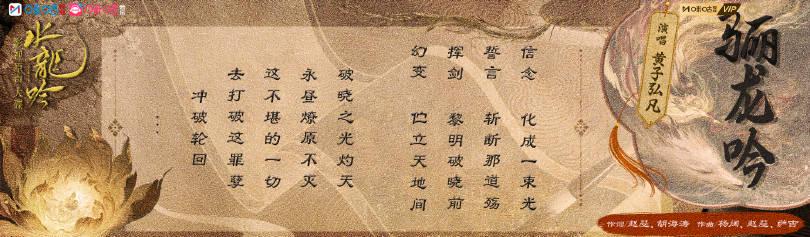 骊龙吟
VIP
演唱 黄子弘凡
信念 化成一束光
誓言 斩断那道殇
挥剑 黎明破晓前
幻变 伫立天地间
破晓之光灼天
永昼燎原不灭
这不堪的一切
去打破这罪孽
...
冲破轮回
水龍吟
作词 胡海涛 作曲 杨阔、萨吉